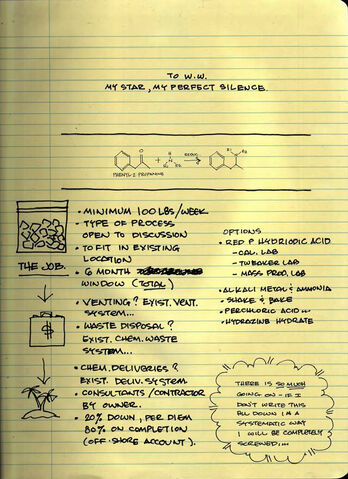 TO W.W.
MY STAR, MY PERFECT SILENCE.
PHENYL-2 PROPANONE
THE JOB.
• MINIMUM 100 LBS/WEEK
• TYPE OF PROCESS
OPEN TO DISCUSSION
• TO FIT IN EXISTING
LOCATION
• 6 MONTH
WINDOW (TOTAL)
• VENTING? EXIST. VENT.
SYSTEM...
• WASTE DISPOSAL?
EXIST. CHEM. WASTE
SYSTEM...
• CHEM. DELIVERIES?
EXIST. DELIV. SYSTEM
• CONSULTANTS/CONTRACTOR
BY OWNER.
• 20% DOWN, PER DIEM
80% ON COMPLETION
(OFF-SHORE ACCOUNT).
OPTIONS
• RED P HYDRIODIC ACID
- CAL. LAB
- TWEAKER LAB
- MASS PROD. LAB
• ALKALI METAL & AMMONIA
• SHAKE & BAKE
• PERCHLORIC ACID...
• HYDRAZINE HYDRATE
THERE IS SO MUCH
GOING ON - IF I
DON'T WRITE THIS
ALL DOWN IN A
SYSTEMATIC WAY
I WILL BE COMPLETELY
SCREWED...